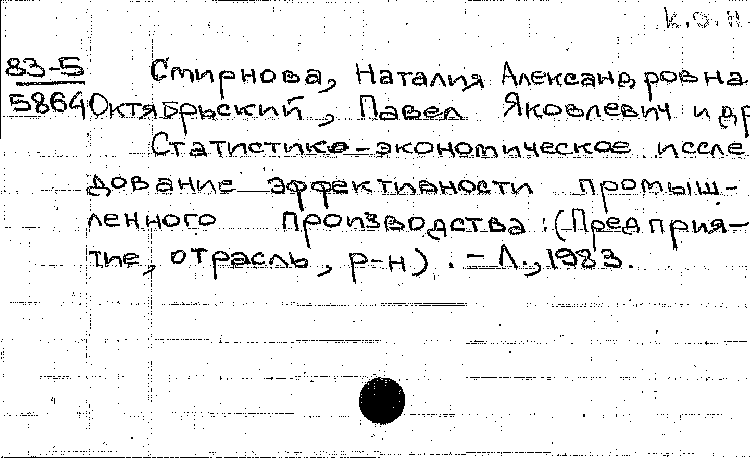 к.о.н
83-5 Смирнова, Наталия Александровна
5864 Октябрьский, Павел Яковлевич и др
Статистико-экономическое иссле
дование эффективности промыш-
ленного производства: (Предприя-
тие, отрасль, р-н). - Л., 1983.